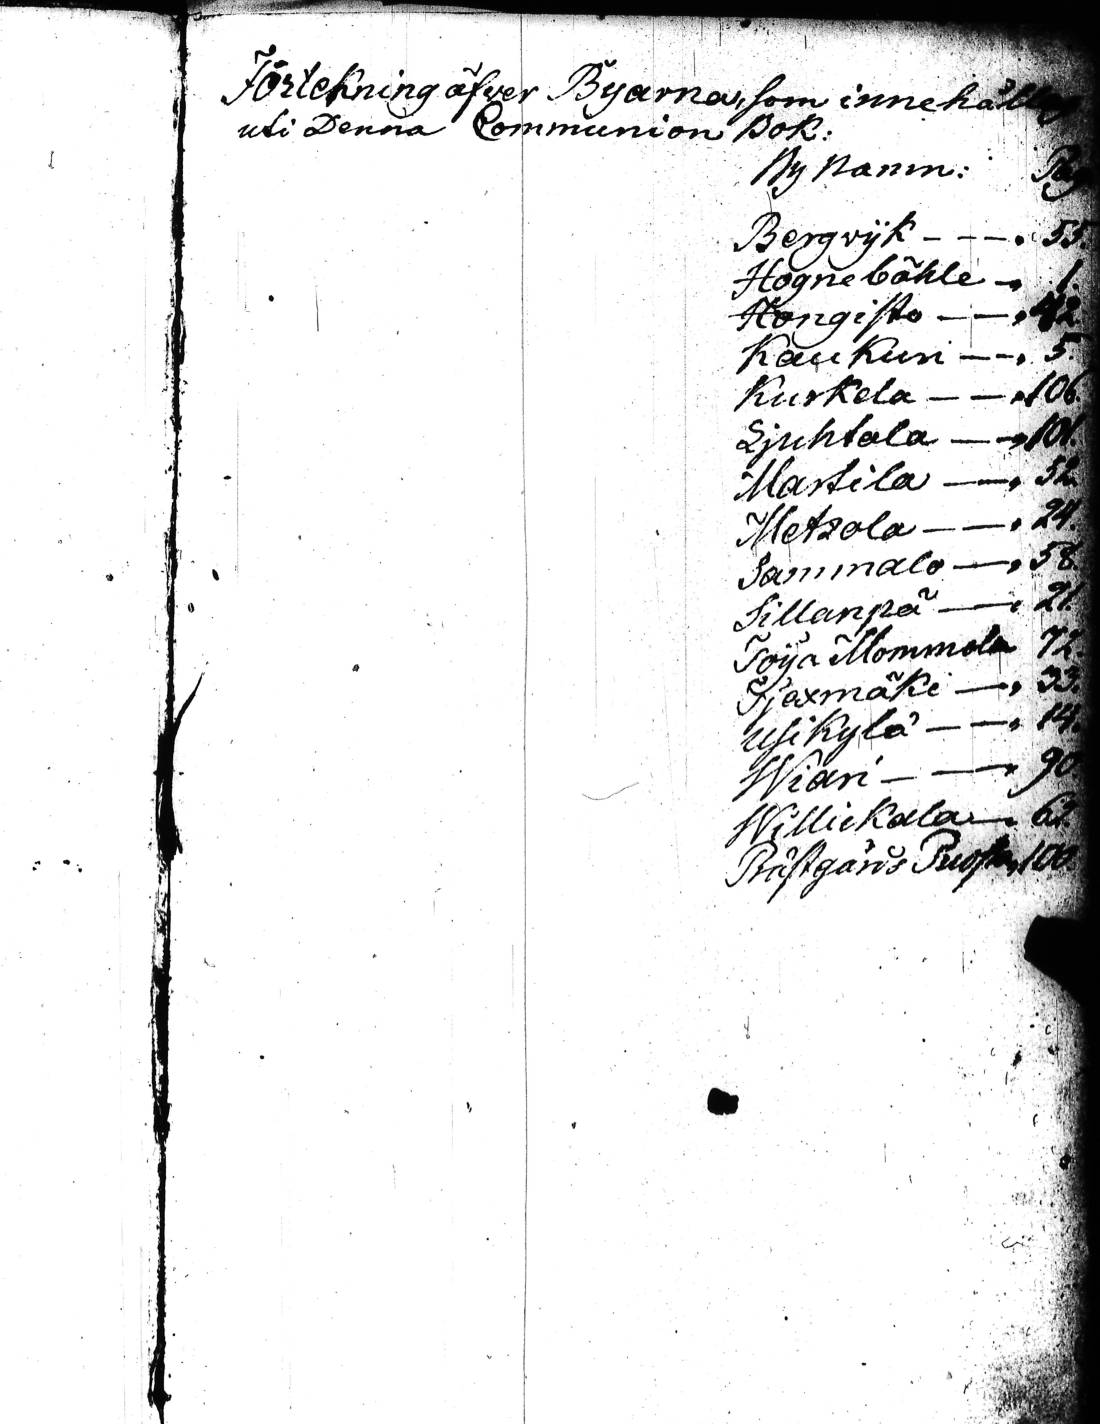 Förtekning öfver Byarna, som innehålles
uti Denna Communion Bok:
By Namn: Pag
Bergvÿk - - - . 55.
Hognebôhle - , 1.
Hongisto - - , 42
Kaukuri - - , 5.
Kurkela - - , 106.
Ljuhtala - - , 101.
Martila - - , 52.
Metzola - - , 24.
Sammalo - , 58.
Sillanpä - , 21.
Töÿja Mommola 72.
Tjäxmäki - , 33.
Usikylä - - , 14.
Wiari - - , 90.
Williekala - . 62.
Prästgårds 100.